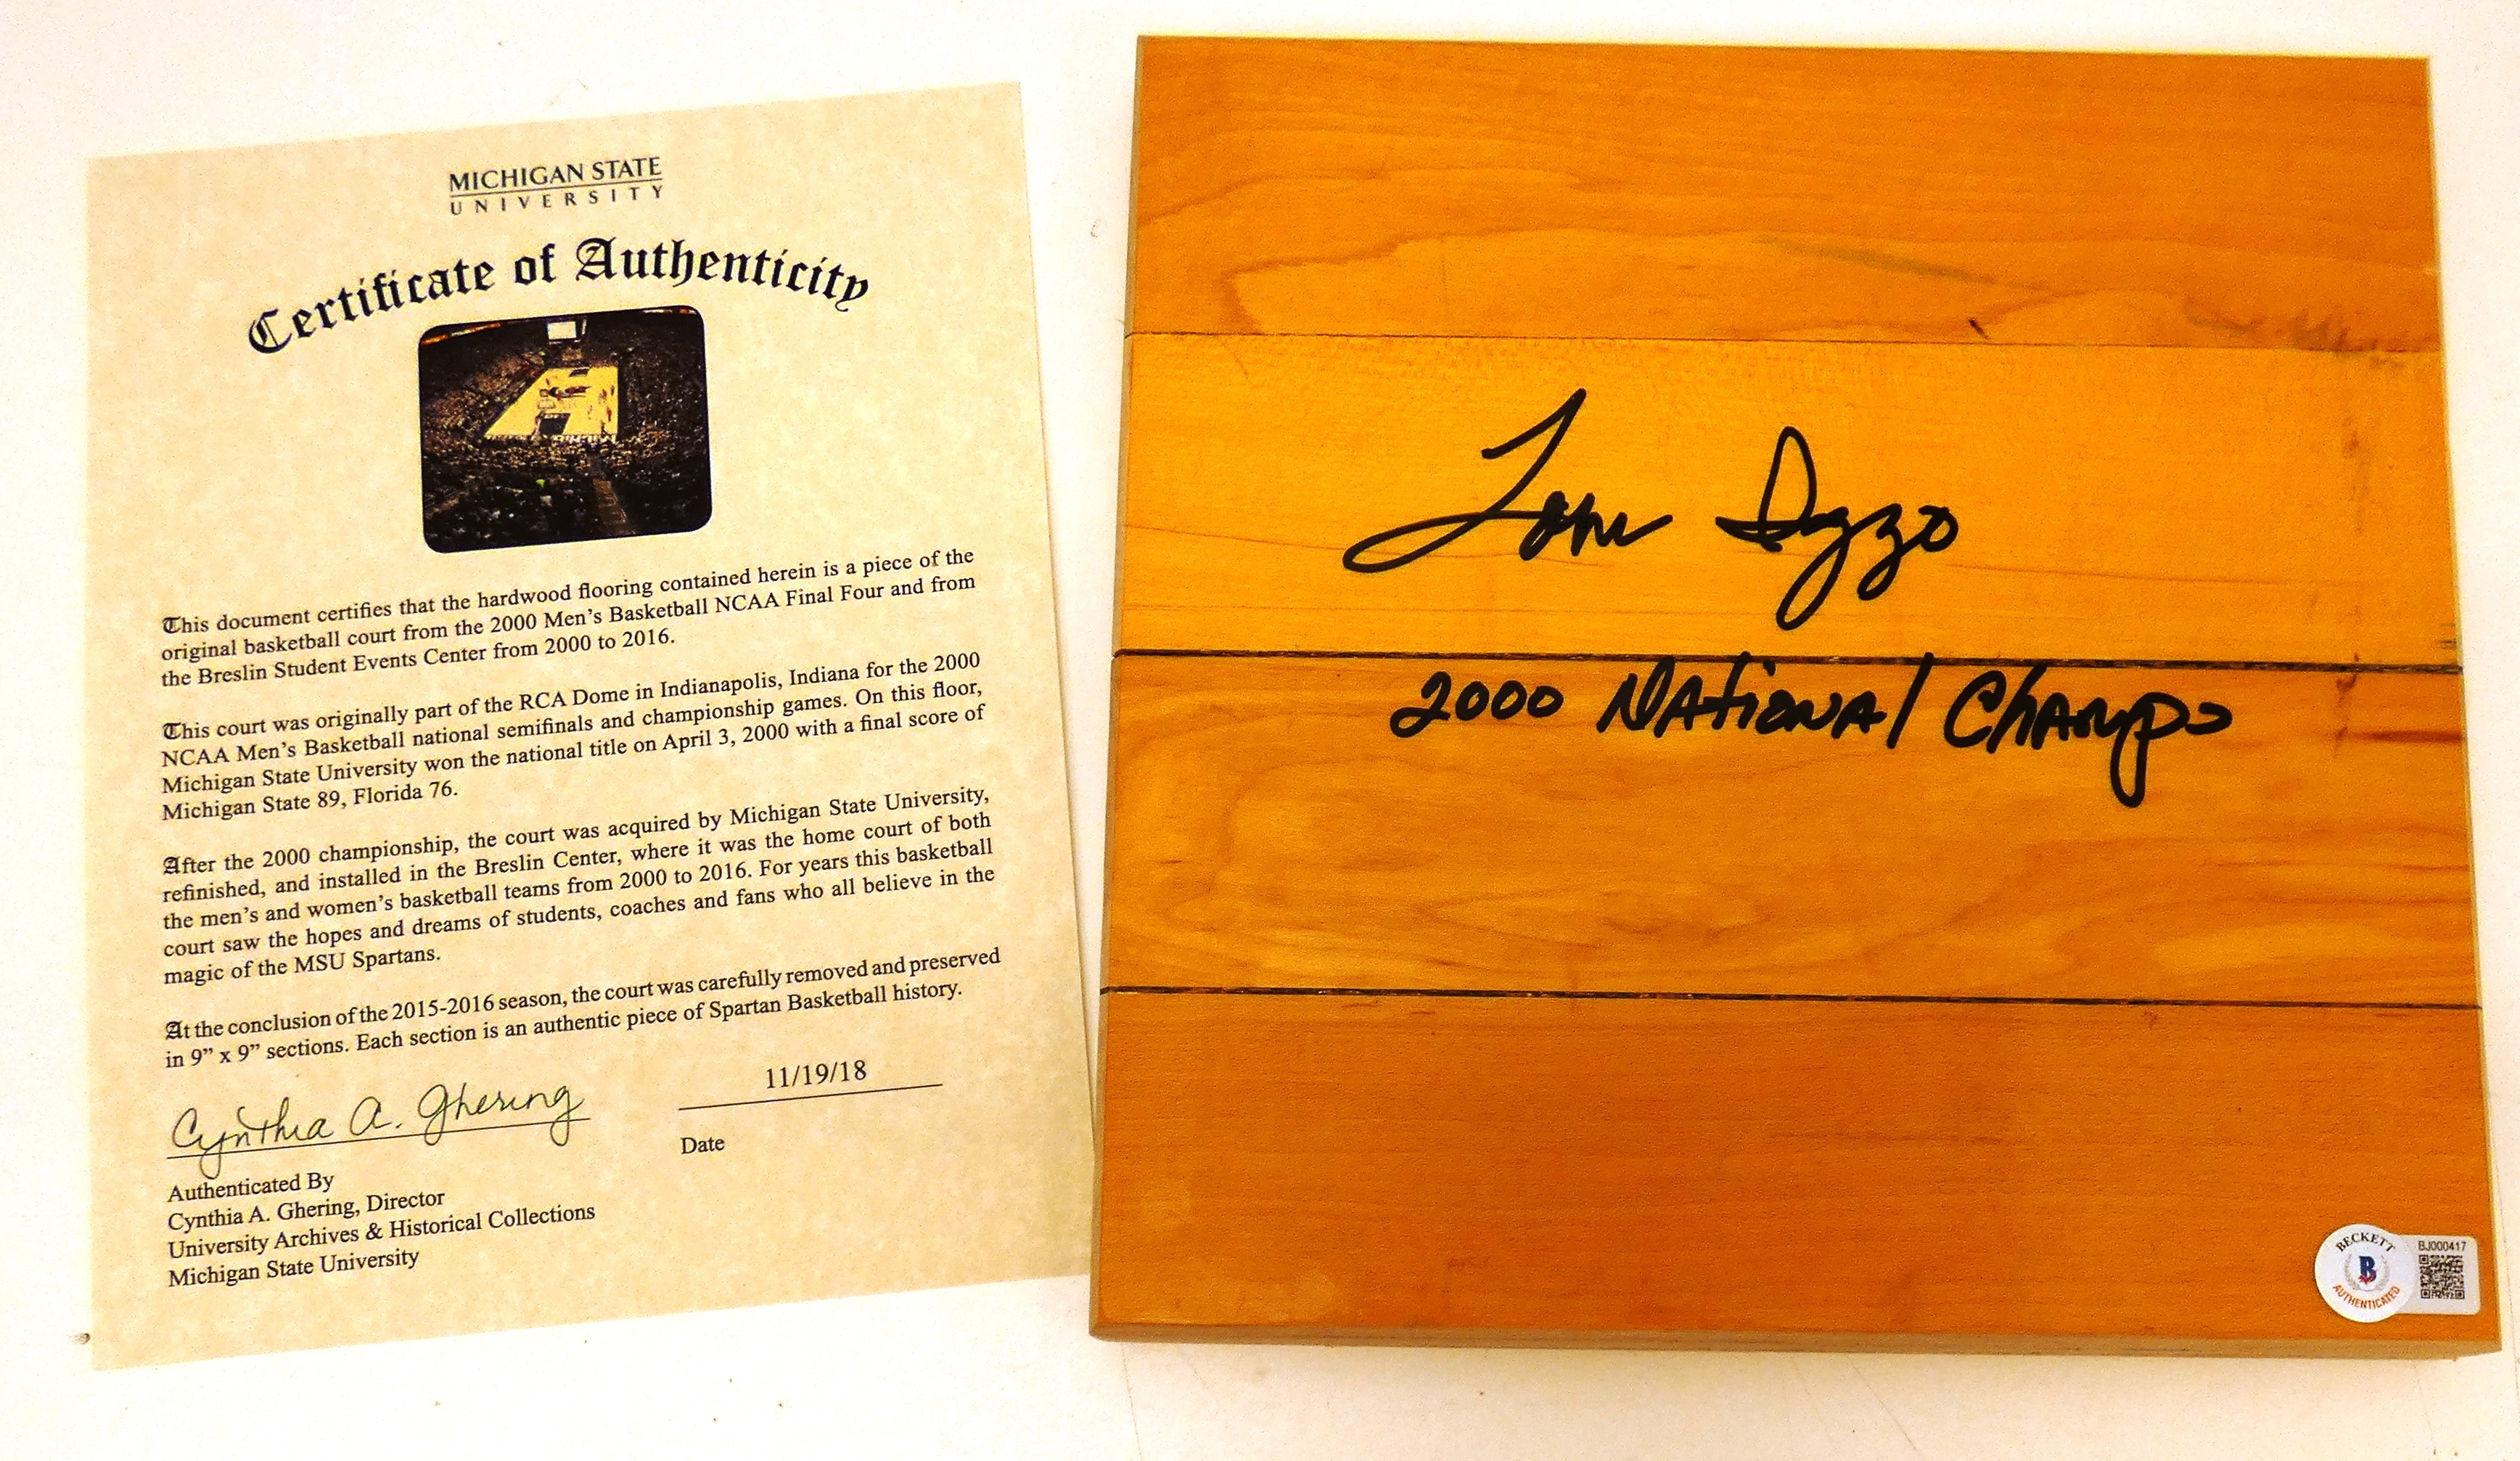 MICHIGAN STATE
UNIVERSITY
Certificate of Authenticity
This document certifies that the hardwood flooring contained herein is a piece of the
original basketball court from the 2000 Men’s Basketball NCAA Final Four and from
the Breslin Student Events Center from 2000 to 2016.
This court was originally part of the RCA Dome in Indianapolis, Indiana for the 2000
NCAA Men’s Basketball national semifinals and championship games. On this floor,
Michigan State University won the national title on April 3, 2000 with a final score of
Michigan State 89, Florida 76.
After the 2000 championship, the court was acquired by Michigan State University,
refinished, and installed in the Breslin Center, where it was the home court of both
the men’s and women’s basketball teams from 2000 to 2016. For years this basketball
court saw the hopes and dreams of students, coaches and fans who all believe in the
magic of the MSU Spartans.
At the conclusion of the 2015-2016 season, the court was carefully removed and preserved
in 9” x 9” sections. Each section is an authentic piece of Spartan Basketball history.
Cynthia A. Ghering
11/19/18
Date
Authenticated By
Cynthia A. Ghering, Director
University Archives & Historical Collections
Michigan State University
Tom Izzo
2000 National Champs
BECKETT
B
AUTHENTICATED
BJ000417